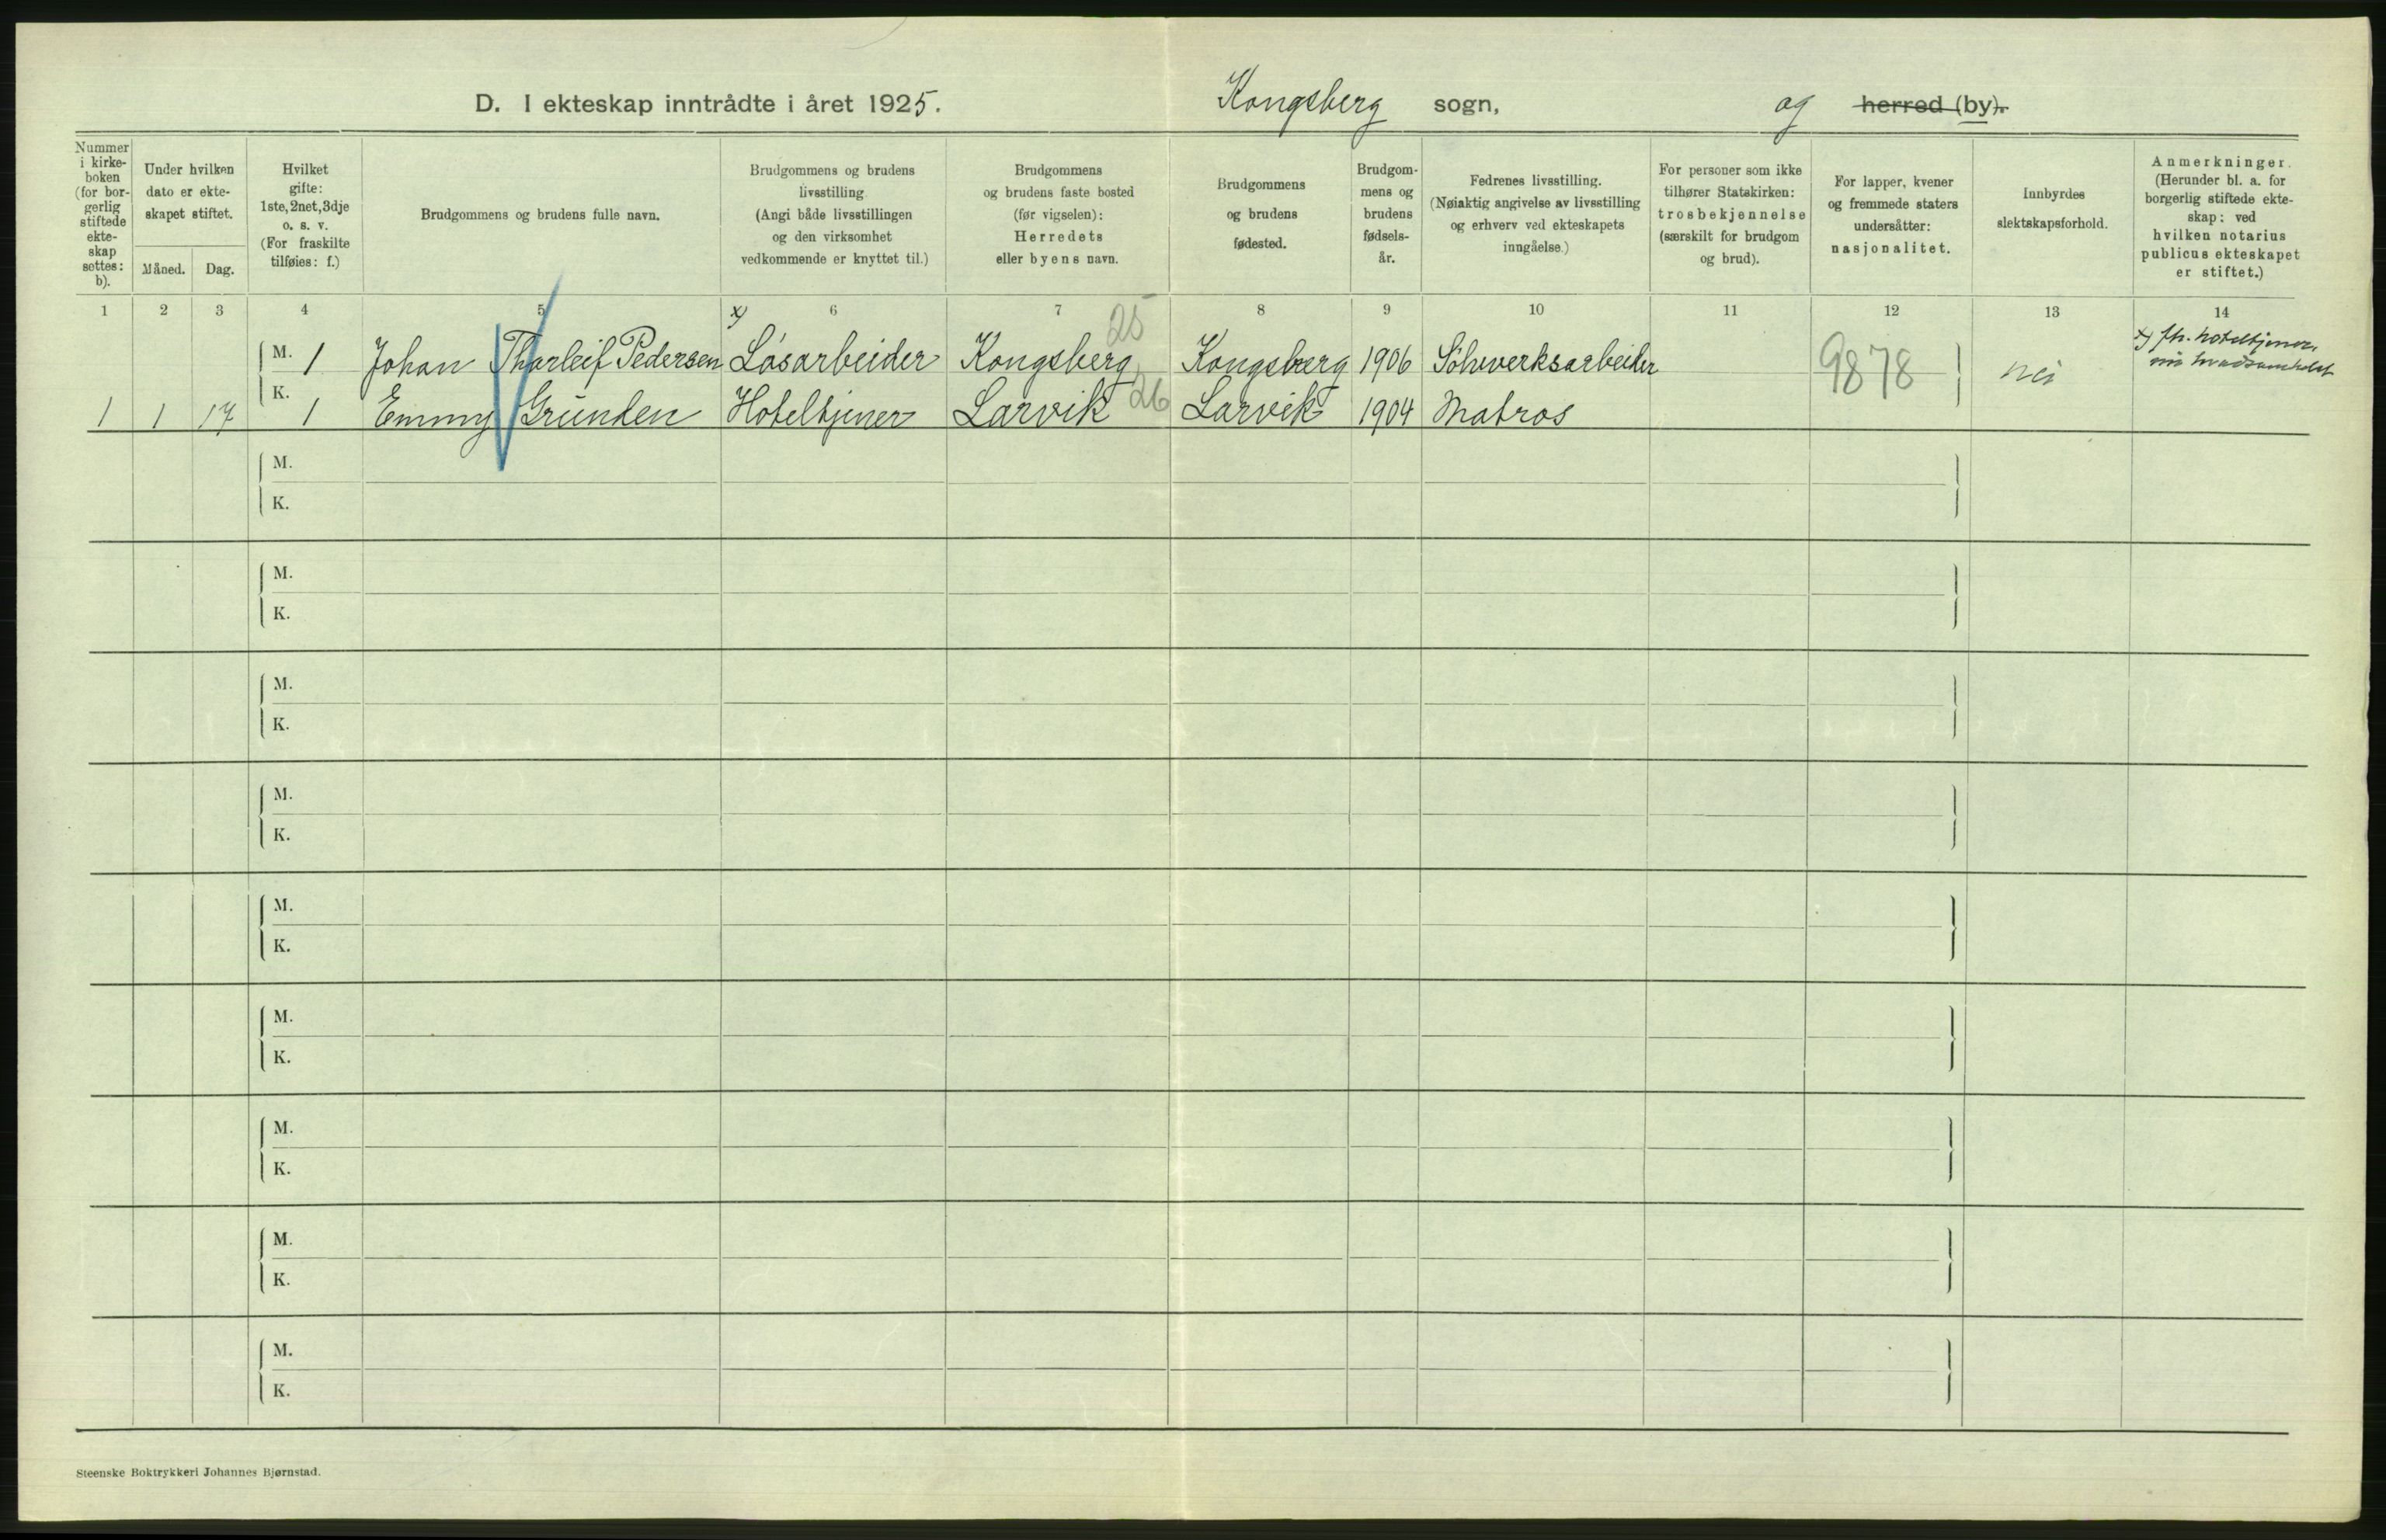 D. I ekteskap inntrådte i året 1925. Kongsberg sogn, og herred (by).
Nummer
i kirke-
boken
(for bor-
gerlig
stiftede
ekte-
skap
settes:
b).
Under hvilken
dato er ekte-
skapet stiftet.
Måned. Dag.
Hvilket
gifte:
1ste, 2net, 3dje
o. s. v.
(For fraskilte
tilføies: f.)
Brudgommens og brudens fulle navn.
Brudgommens og brudens
livsstilling.
(Angi både livsstillingen
og den virksomhet
vedkommende er knyttet til.)
Brudgommens
og brudens faste bosted
(før vigselen):
Herredets
eller byens navn.
Brudgommens
og brudens
fødested.
Brudgom-
mens og
brudens
fødsels-
år.
Fedrenes livsstilling.
(Nøiaktig angivelse av livsstilling
og erhverv ved ekteskapets
inngåelse.)
For personer som ikke
tilhører Statskirken:
trosbekjennelse
(særskilt for brudgom
og brud).
For lapper, kvener
og fremmede staters
undersåtter:
nasjonalitet.
Innbyrdes
slektskapsforhold.
Anmerkninger.
(Herunder bl. a. for
borgerlig stiftede ekte-
skap: ved
hvilken notarius
publicus ekteskapet
er stiftet.)
1 2 3 4 5 x) 6 7 8 9 10 11 12 13 14
M. 1 Johan Tharleif Pedersen Løsarbeider Kongsberg 25 Kongsberg 1906 Sölvverksarbeider 9878 nei x) fh. hoteltjener,
K.
1 1 17 1 Emmy Gründen Hoteltjener Larvik 26 Larvik 1904 Matros
M.
K.
M.
K.
M.
K.
M.
K.
M.
K.
M.
K.
M.
K.
M.
K.
M.
K.
Steenske Boktrykkeri Johannes Bjørnstad.